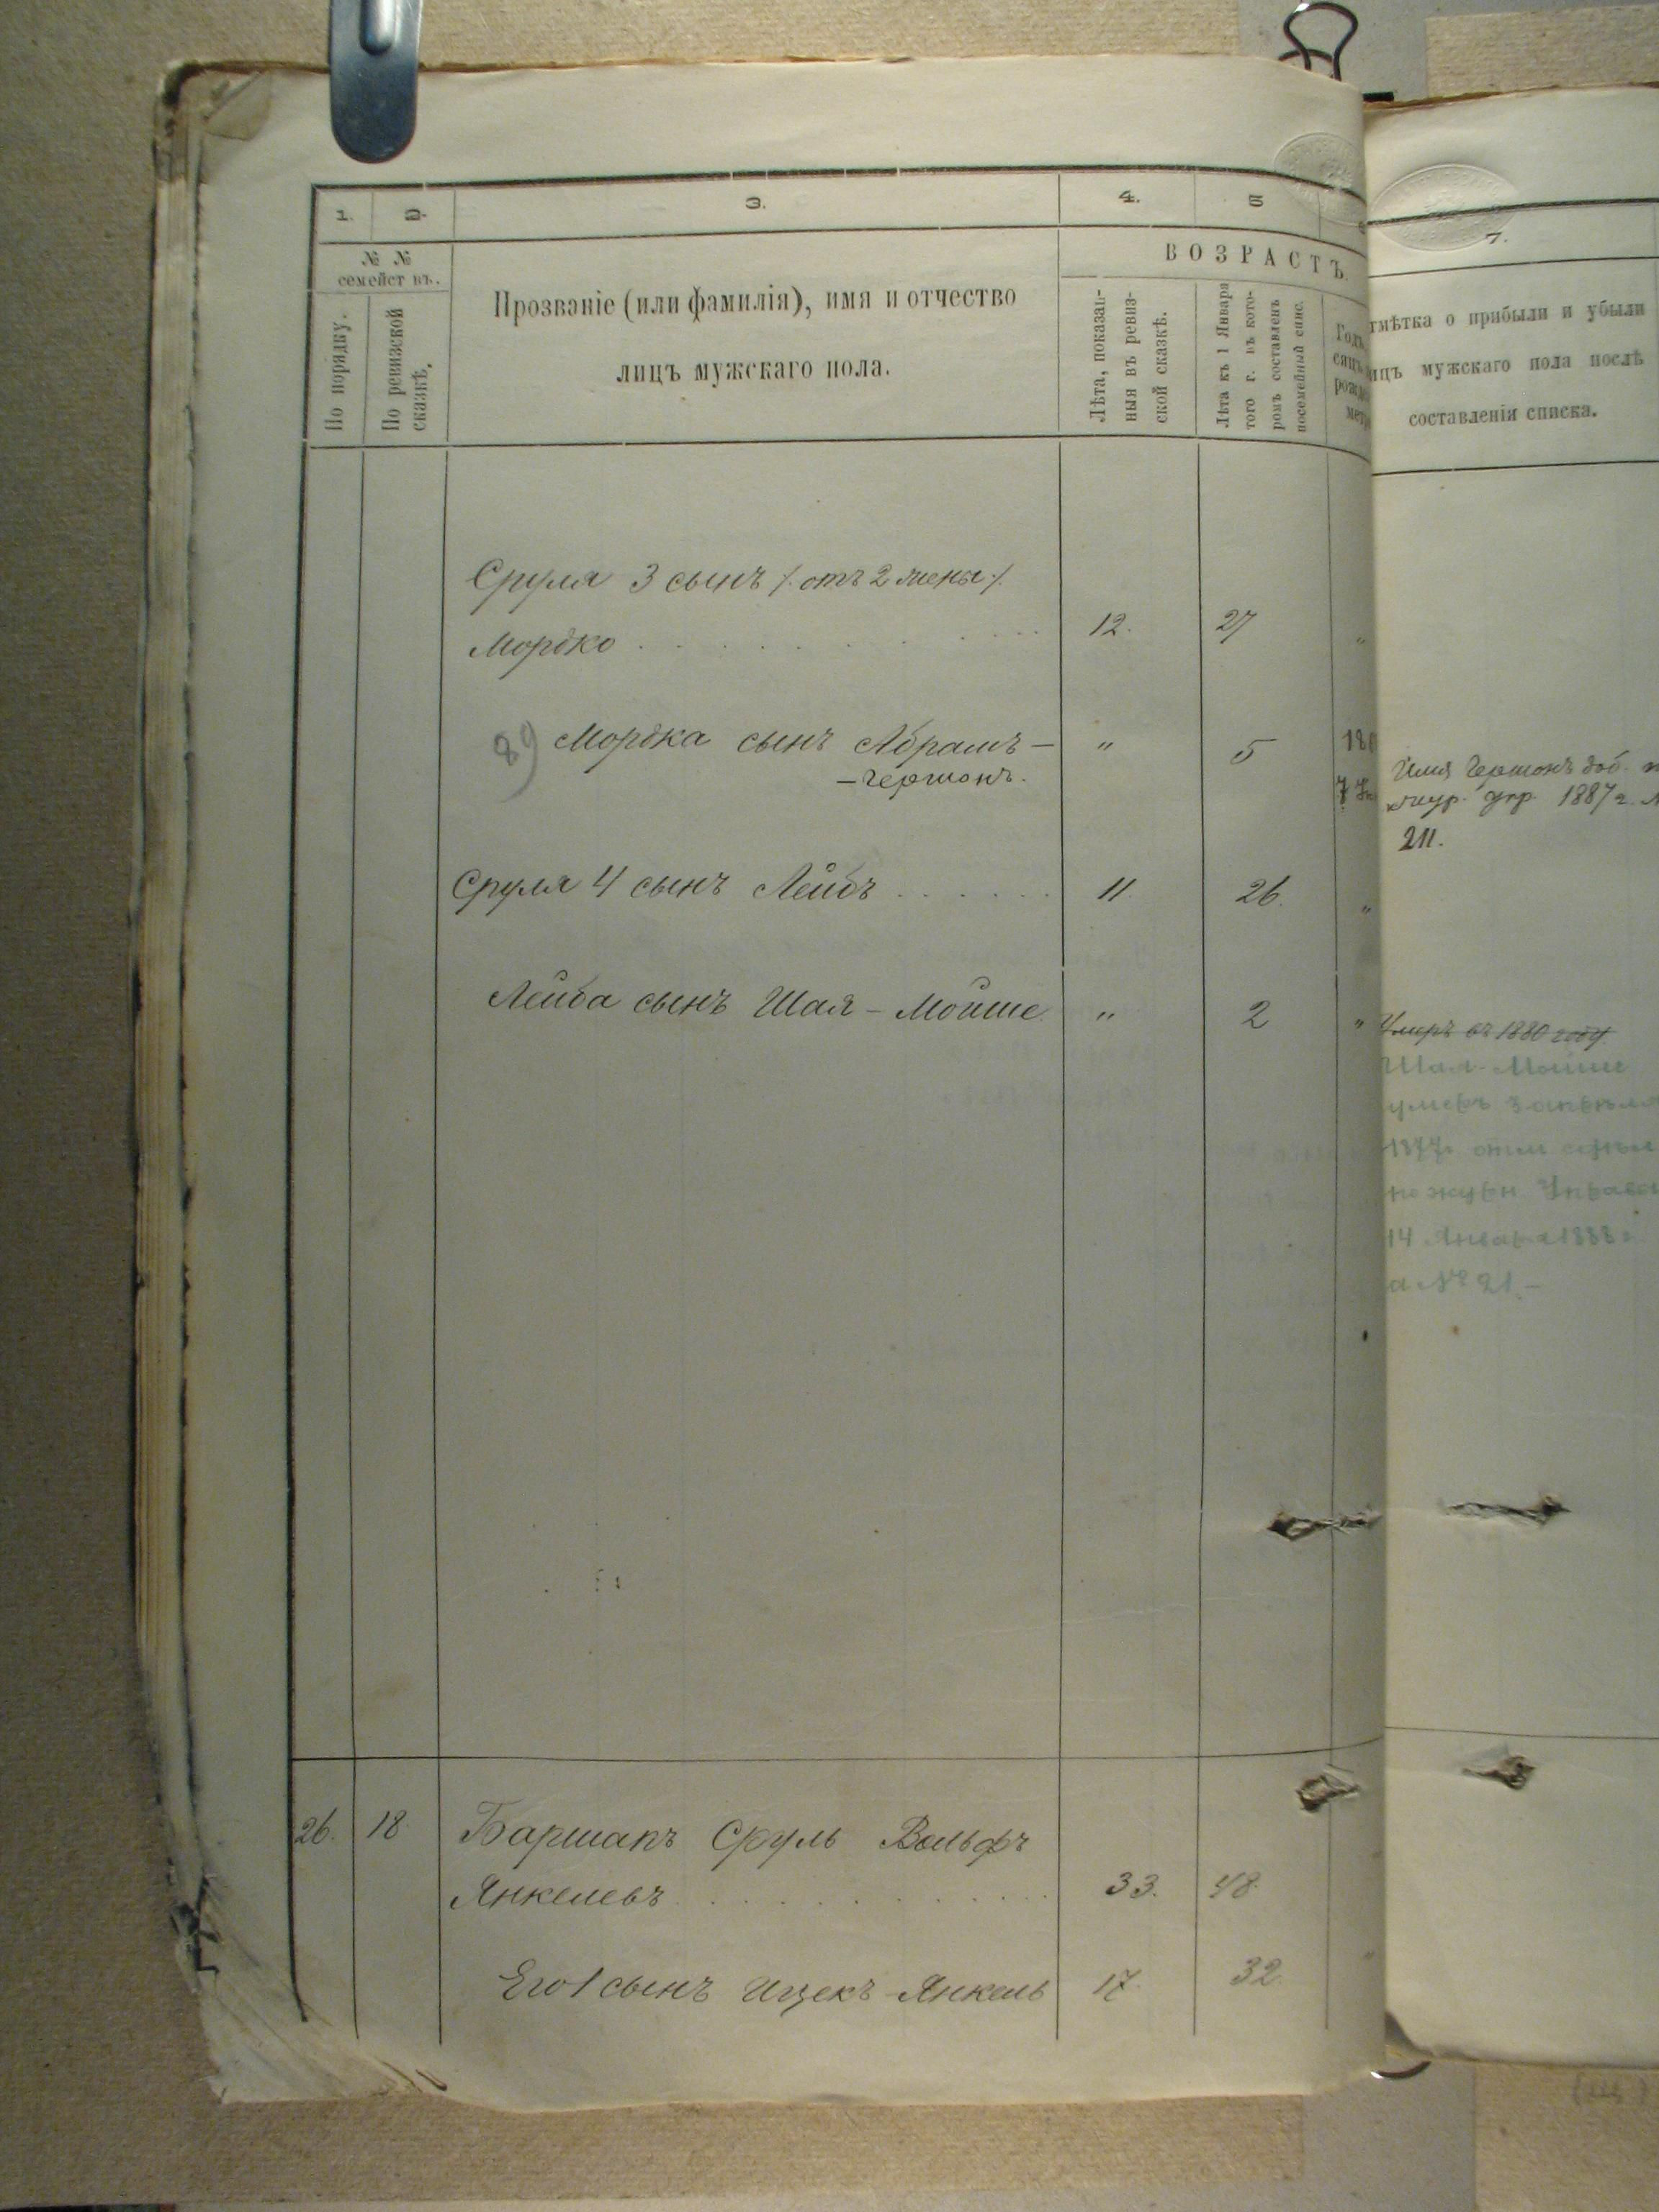 1. 2. 3. 4. 5
7.
№ №
семейст въ.
По порядку.
По ревизской
сказкѣ.
Прозваніе (или фамилія), имя и отчество
лицъ мужскаго пола.
ВОЗРАСТЪ.
Лѣта, показан-
ныя въ ревиз-
ской сказкѣ.
Лѣта къ 1 Января
того г. въ кото-
ромъ составленъ
посемейный спис.
тмѣтка о прибыли и убыли
ицъ мужскаго пола послѣ
составленія списка.
Сруля 3 сынъ /. отъ 2 жены /.
Мордко . . . . . . . . . 12. 27 "
89) Мордка сынъ Абрамъ — " 5
— Гершонъ.
Имя Гершонъ доб.
жур. упр 1887 г.
211.
Сруля 4 сынъ Лейбъ . . . . . . 11. 26. "
Лейба сынъ Шая - Мойше " 2 "
Умеръ въ 1880 году.
Шая - Мойше
умеръ 3 апрѣля
1877г.
по журн. Управы
14 Января 1888 г
а № 21. —
26. 18. Баршапъ Сруль Вольфъ
Янкелевъ . . . . . . . . . 33. 48.
Его 1 сынъ Ицекъ-Янкель 17. 32.